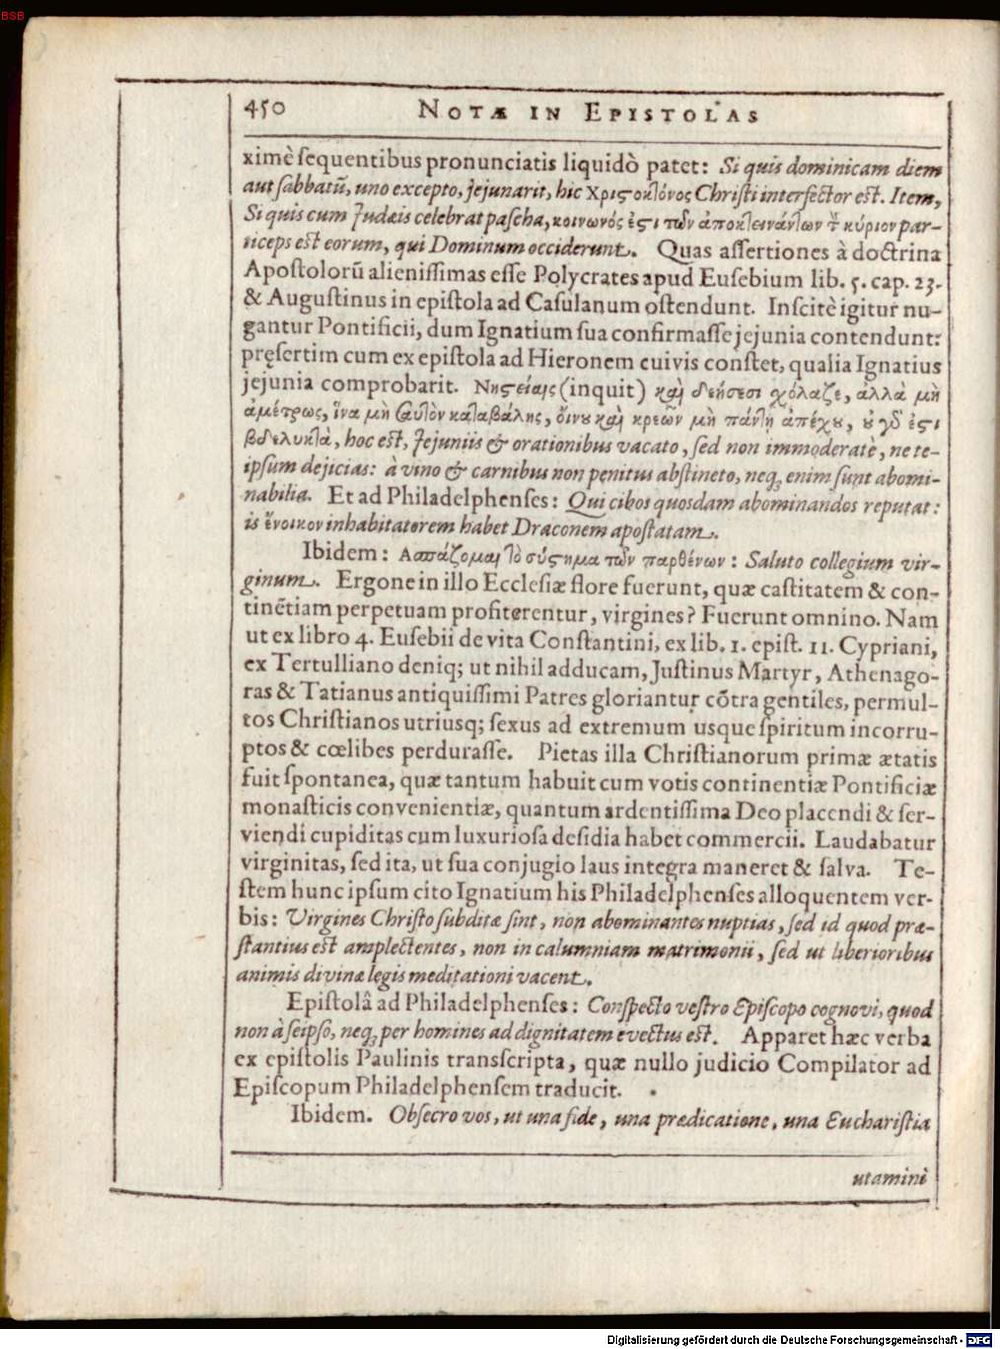 BSB
450 NOTÆ IN EPISTOLAS
ximè sequentibus pronunciatis liquidò patet: Si quis dominicam diem
aut sabbatũ, uno excepto, jejunarit, hic Χρις-οκτόνος Christi interfector est. Item,
Si quis cum Judæis celebrat pascha, κοινωνός ἐςι τῶν ἀποκτεινάντων τ κύριον par-
ticeps est eorum, qui Dominum occiderunt. Quas assertiones à doctrina
Apostolorũ alienissimas esse Polycrates apud Eusebium lib. 5. cap. 23.
& Augustinus in epistola ad Casulanum ostendunt. Inscitè igitur nu-
gantur Pontificii, dum Ignatium sua confirmasse jejunia contendunt:
pręsertim cum ex epistola ad Hieronem cuivis constet, qualia Ignatius
jejunia comprobarit. Νηςείαις (inquit) καὶ δεήσεσι χόλαζε, ἀλλὰ μὴ
ἀμέτρως, ἵνα μὴ ςαυτὸν καταβάλης, οἴνου καὶ κρεῶν μὴ πάντη ἀπέχου, ὐ γδ ἐςι
βδελυκτὰ, hoc est, Jejuniis & orationibus vacato, sed non immoderatè, ne te-
ipsum dejicias: à vino & carnibus non penitus abstineto, neq; enim sunt abomi-
nabilia. Et ad Philadelphenses: Qui cibos quosdam abominandos reputat:
is ἔνοικον inhabitatorem habet Draconem apostatam.
Ibidem: Ασπάζομαι τὸ σύςημα τῶν παρθένων: Saluto collegium vir-
ginum. Ergone in illo Ecclesiæ flore fuerunt, quæ castitatem & con-
tinẽtiam perpetuam profiterentur, virgines? Fuerunt omnino. Nam
ut ex libro 4. Eusebii de vita Constantini, ex lib. 1. epist. 11. Cypriani,
ex Tertulliano deniq; ut nihil adducam, Justinus Martyr, Athenago-
ras & Tatianus antiquissimi Patres gloriantur cõtra gentiles, permul-
tos Christianos utriusq; sexus ad extremum usque spiritum incorru-
ptos & cœlibes perdurasse. Pietas illa Christianorum primæ ætatis
fuit spontanea, quæ tantum habuit cum votis continentiæ Pontificiæ
monasticis convenientiæ, quantum ardentissima Deo placendi & ser-
viendi cupiditas cum luxuriosa desidia habet commercii. Laudabatur
virginitas, sed ita, ut sua conjugio laus integra maneret & salva. Te-
stem hunc ipsum cito Ignatium his Philadelphenses alloquentem ver-
bis: Virgines Christo subditæ sint, non abominantes nuptias, sed id quod præ-
stantius est amplectentes, non in calumniam matrimonii, sed ut liberioribus
animis divinæ legis meditationi vacent.
Epistolâ ad Philadelphenses: Conspecto vestro Episcopo cognovi, quod
non à seipso, neq; per homines ad dignitatem evectus est. Apparet hæc verba
ex epistolis Paulinis transscripta, quæ nullo judicio Compilator ad
Episcopum Philadelphensem traducit.
Ibidem. Obsecro vos, ut una fide, una prædicatione, una Eucharistia
utamini
Digitalisierung gefördert durch die Deutsche Forschungsgemeinschaft - DFG